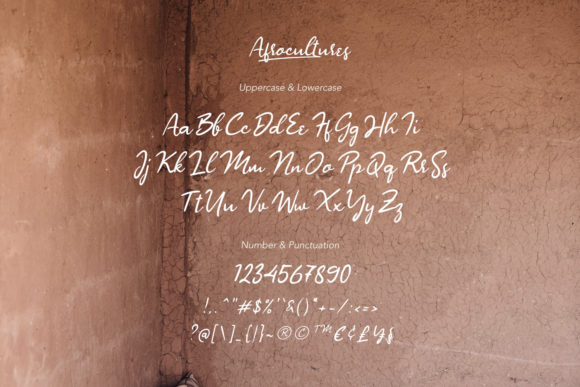 Afrocultures
Uppercase & Lowercase
Aa Bb Cc Dd Ee Ff Gg Hh Ii
Jj Kk Ll Mm Nn Oo Pp Qq Rr Ss
Tt Uu Vv Ww Xx Yy Zz
Number & Punctuation
1234567890
!,.^"#$%'`&()*+-/:<=>
?@[\]_{|}~®©™€¢£¥§